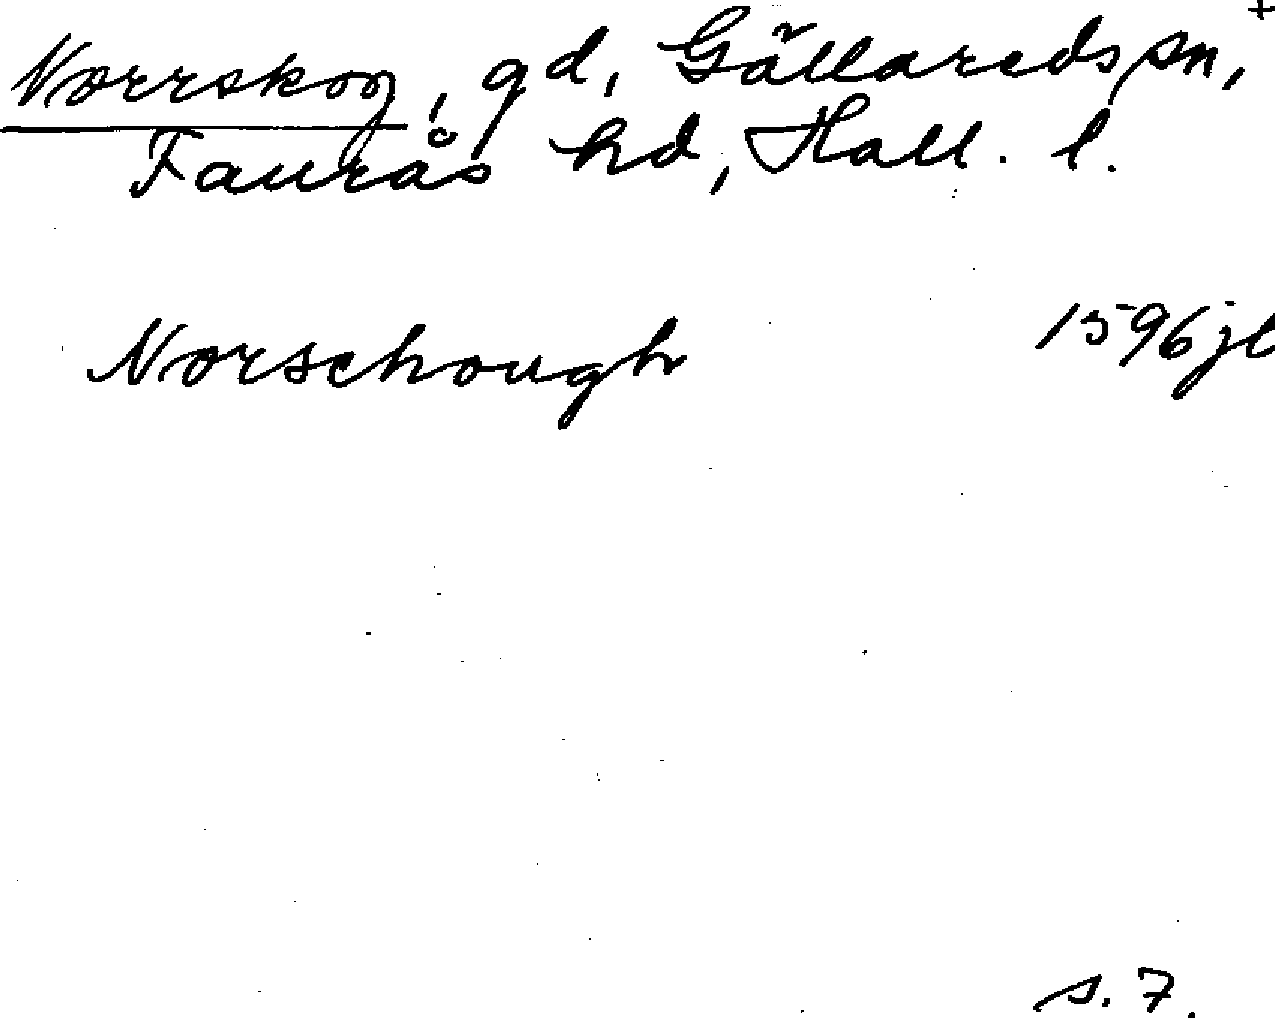 +
Norrskog, gd, Gällareds sn,
Faurås hd, Hall. l.
Norschough 1596 jb
s. 7.